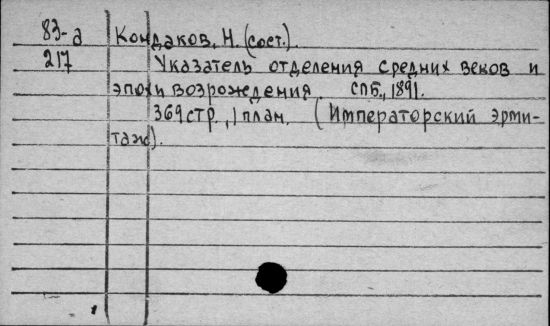 83-а Кондаков, Н. (сост.).
217 Указатель отделения средних веков и
эпохи возрождения. СПБ., 1891.
369 стр., 1 план. (Императорский эрми-
таж).